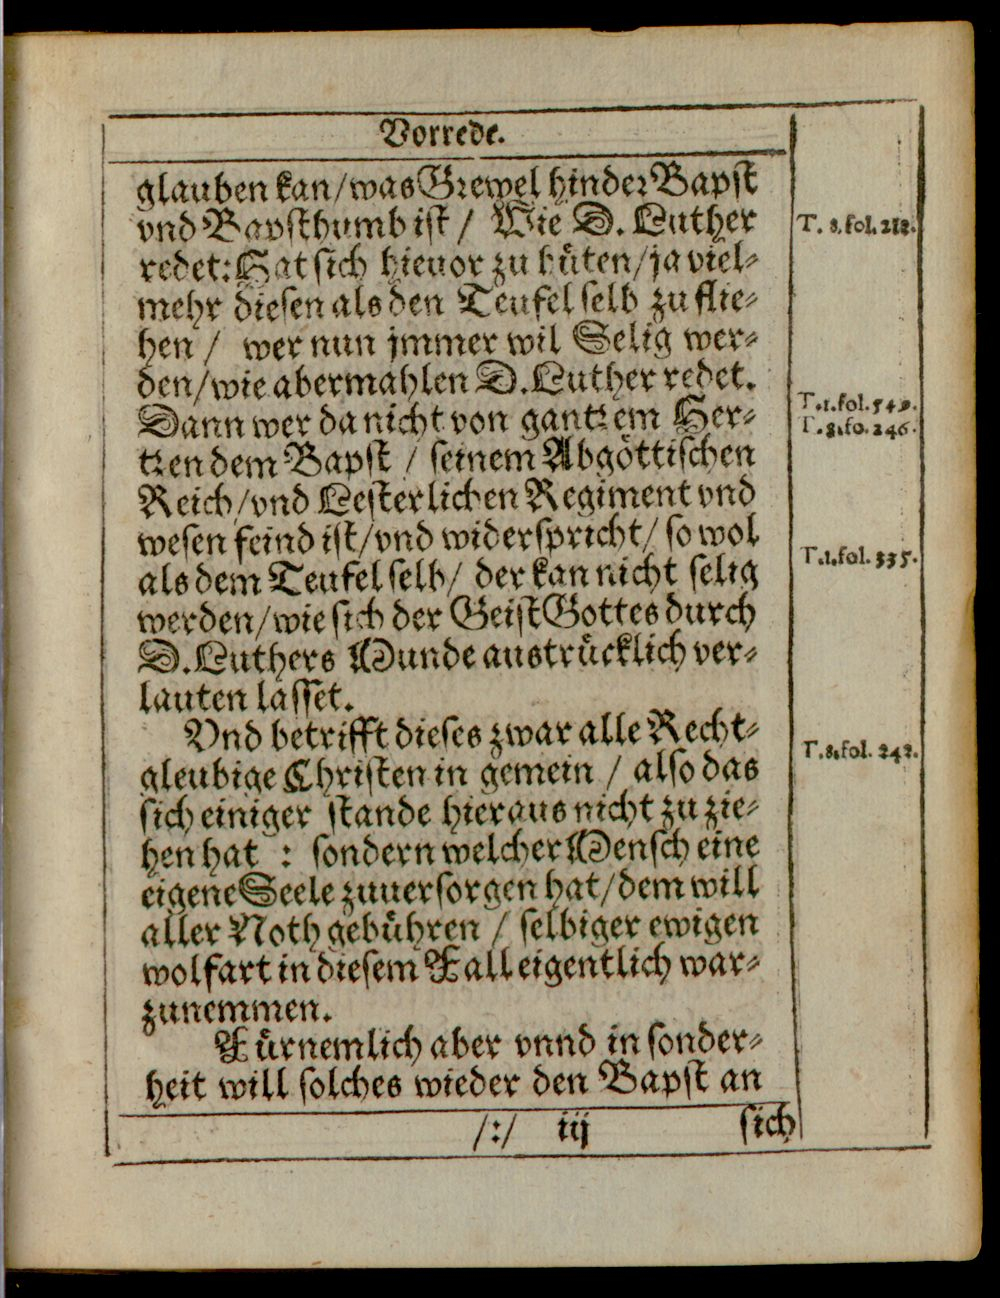 Vorrede.
glauben kan/was Grewel hinder Bapst
vnd Bapsthumb ist / Wie D. Luther
T. 8. fol. 212.
redet: Hat sich hieuor zu hüten/ja viel-
mehr diesen als den Teufel selb zu flie-
hen / wer nun jmmer wil Selig wer-
den/wie abermahlen D. Luther redet.
T.1.fol.542.
Dann wer da nicht von gantzem Her-
T.8.fo.246.
tzen dem Bapst / seinem Abgöttischen
Reich/vnd Lesterlichen Regiment vnd
wesen feind ist/vnd widerspricht/ so wol
T.1.fol.335.
als dem Teufel selb/ der kan nicht selig
werden/wie sich der Geist Gottes durch
D. Luthers Munde austrücklich ver-
lauten lasset.
Vnd betrifft dieses zwar alle Recht-
T.8.fol.242.
gleubige Christen in gemein / also das
sich einiger stande hieraus nicht zu zie-
hen hat : sondern welcher Mensch eine
eigene Seele zuuersorgen hat/dem will
aller Noth gebühren / selbiger ewigen
wolfart in diesem Fall eigentlich war-
zunemmen.
Fürnemlich aber vnnd in sonder-
heit will solches wieder den Bapst an
/:/ iij sich